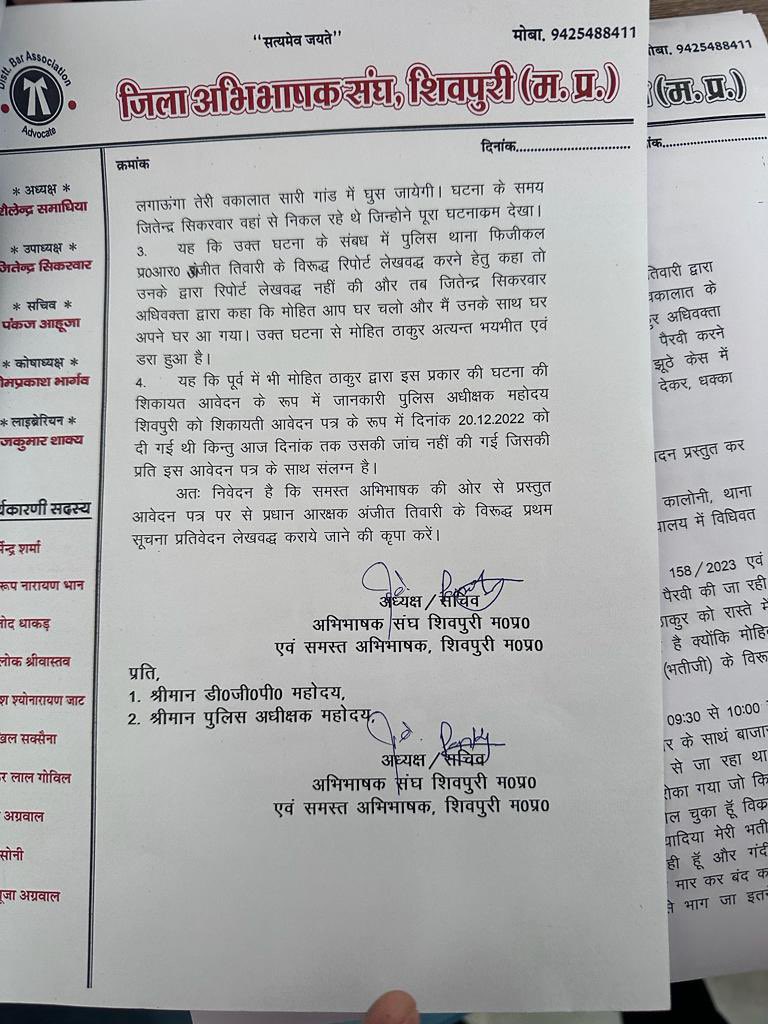 "सत्यमेव जयते"
मोबा. 9425488411
Distt. Bar Association
Advocate
जिला अभिभाषक संघ, शिवपुरी (म. प्र.)
क्रमांक
दिनांक..............................
* अध्यक्ष *
शैलेन्द्र समाधिया
* उपाध्यक्ष *
जितेन्द्र सिकरवार
* सचिव *
पंकज आहूजा
* कोषाध्यक्ष *
मप्रकाश भार्गव
* लाइब्रेरियन *
जकुमार शाक्य
र्यकारणी सदस्य
न्द्र शर्मा
रूप नारायण भान
नोद धाकड़
लोक श्रीवास्तव
श श्योनारायण जाट
खिल सक्सैना
र लाल गोविल
अग्रवाल
सोनी
जा अग्रवाल
लगाऊंगा तेरी वकालात सारी गांड में घुस जायेगी। घटना के समय
जितेन्द्र सिकरवार वहां से निकल रहे थे जिन्होने पूरा घटनाक्रम देखा।
3. यह कि उक्त घटना के संबध में पुलिस थाना फिजीकल
प्र0आर0 अंजीत तिवारी के विरूद्ध रिपोर्ट लेखवद्ध करने हेतु कहा तो
उनके द्वारा रिपोर्ट लेखवद्ध नहीं की और तब जितेन्द्र सिकरवार
अधिवक्ता द्वारा कहा कि मोहित आप घर चलो और मैं उनके साथ घर
अपने घर आ गया। उक्त घटना से मोहित ठाकुर अत्यन्त भयभीत एवं
डरा हुआ है।
4. यह कि पूर्व में भी मोहित ठाकुर द्वारा इस प्रकार की घटना की
शिकायत आवेदन के रूप में जानकारी पुलिस अधीक्षक महोदय
शिवपुरी को शिकायती आवेदन पत्र के रूप में दिनांक 20.12.2022 को
दी गई थी किन्तु आज दिनांक तक उसकी जांच नहीं की गई जिसकी
प्रति इस आवेदन पत्र के साथ संलग्न है।
अतः निवेदन है कि समस्त अभिभाषक की ओर से प्रस्तुत
आवेदन पत्र पर से प्रधान आरक्षक अंजीत तिवारी के विरूद्ध प्रथम
सूचना प्रतिवेदन लेखवद्ध कराये जाने की कृपा करें।
अध्यक्ष / सचिव
अभिभाषक संघ शिवपुरी म0प्र0
एवं समस्त अभिभाषक, शिवपुरी म0प्र0
प्रति,
1. श्रीमान डी0जी0पी0 महोदय,
2. श्रीमान पुलिस अधीक्षक महोदय,
अध्यक्ष / सचिव
अभिभाषक संघ शिवपुरी म0प्र0
एवं समस्त अभिभाषक, शिवपुरी म0प्र0
मोबा. 9425488411
(म. प्र.)
ांक..............................
तिवारी द्वारा
वकालात के
र अधिवक्ता
पैरवी करने
झूठे केस में
देकर, धक्का
दन प्रस्तुत कर
कालोनी, थाना
ालय में विधिवत
158/2023 एवं
पैरवी की जा रही
ठाकुर को रास्ते में
है क्योंकि मोहि
(भतीजी) के विरू
09:30 से 10:00
र के साथं बाजा
से जा रहा था
रोका गया जो कि
ल चुका हूँ विक्र
ादिया मेरी भती
ही हूँ और गंदी
मार कर बंद क
भाग जा इतन